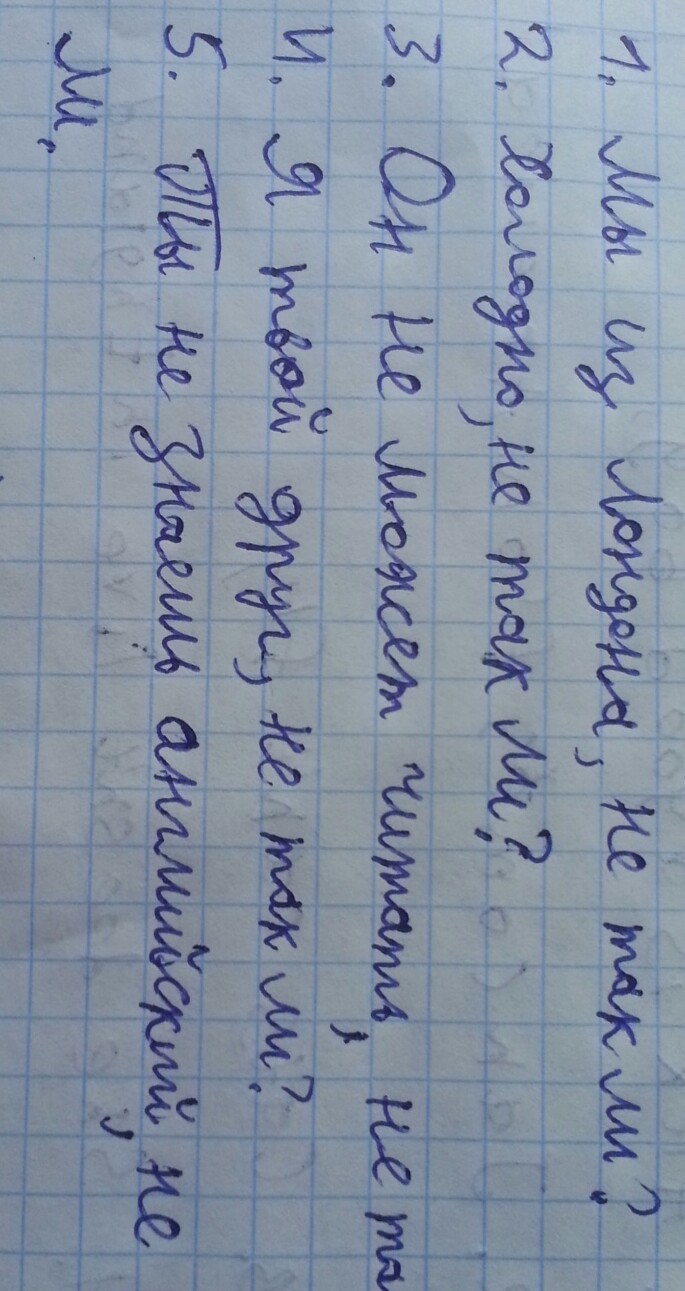 1. Мы из Лондона, не так ли?
2. Холодно, не так ли?
3. Он не может читать, не та
4. Я твой друг, не так ли?
5. Ты не знаешь английский, не
ли.